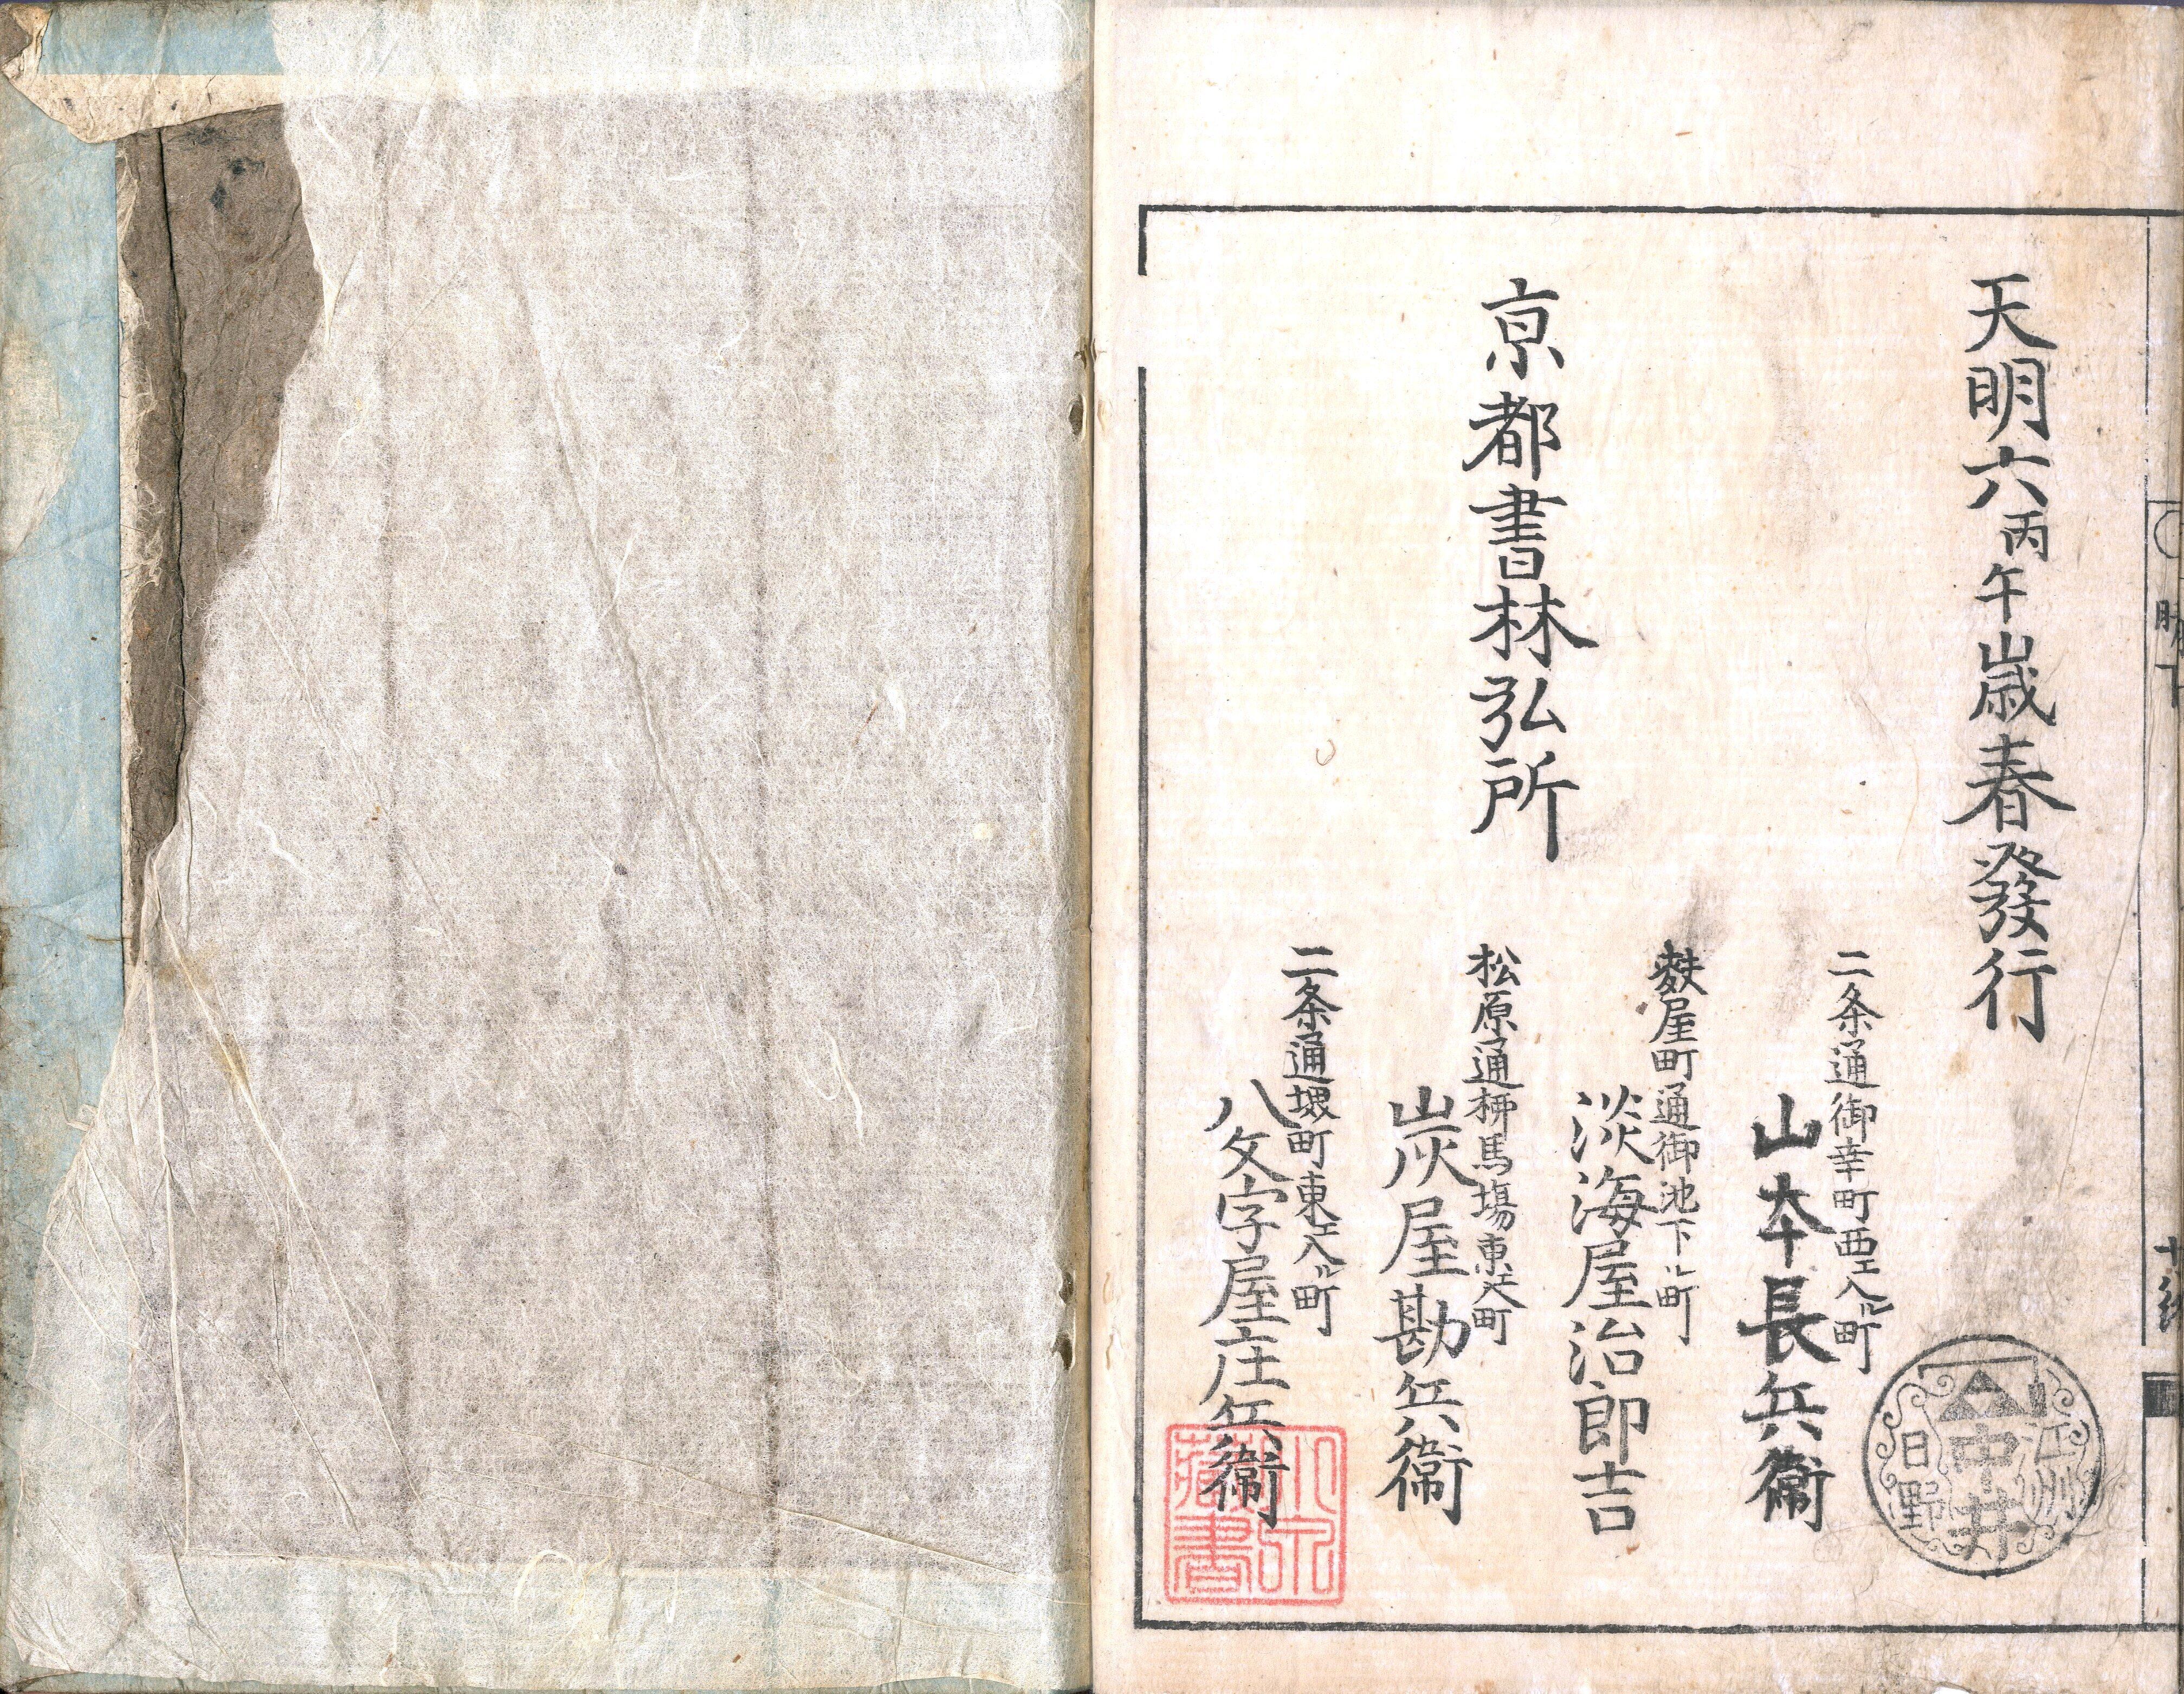 天明六丙午歳春發行
京都書林弘所
二条通御幸町西エ入ル町
山本長兵衛
麩屋町通御池下ル町
淡海屋治郎吉
松原通柳馬場東エ入町
炭屋勘兵衛
二条通堺町東エ入ル町
八文字屋庄兵衛
江州
中井
日野
藏書